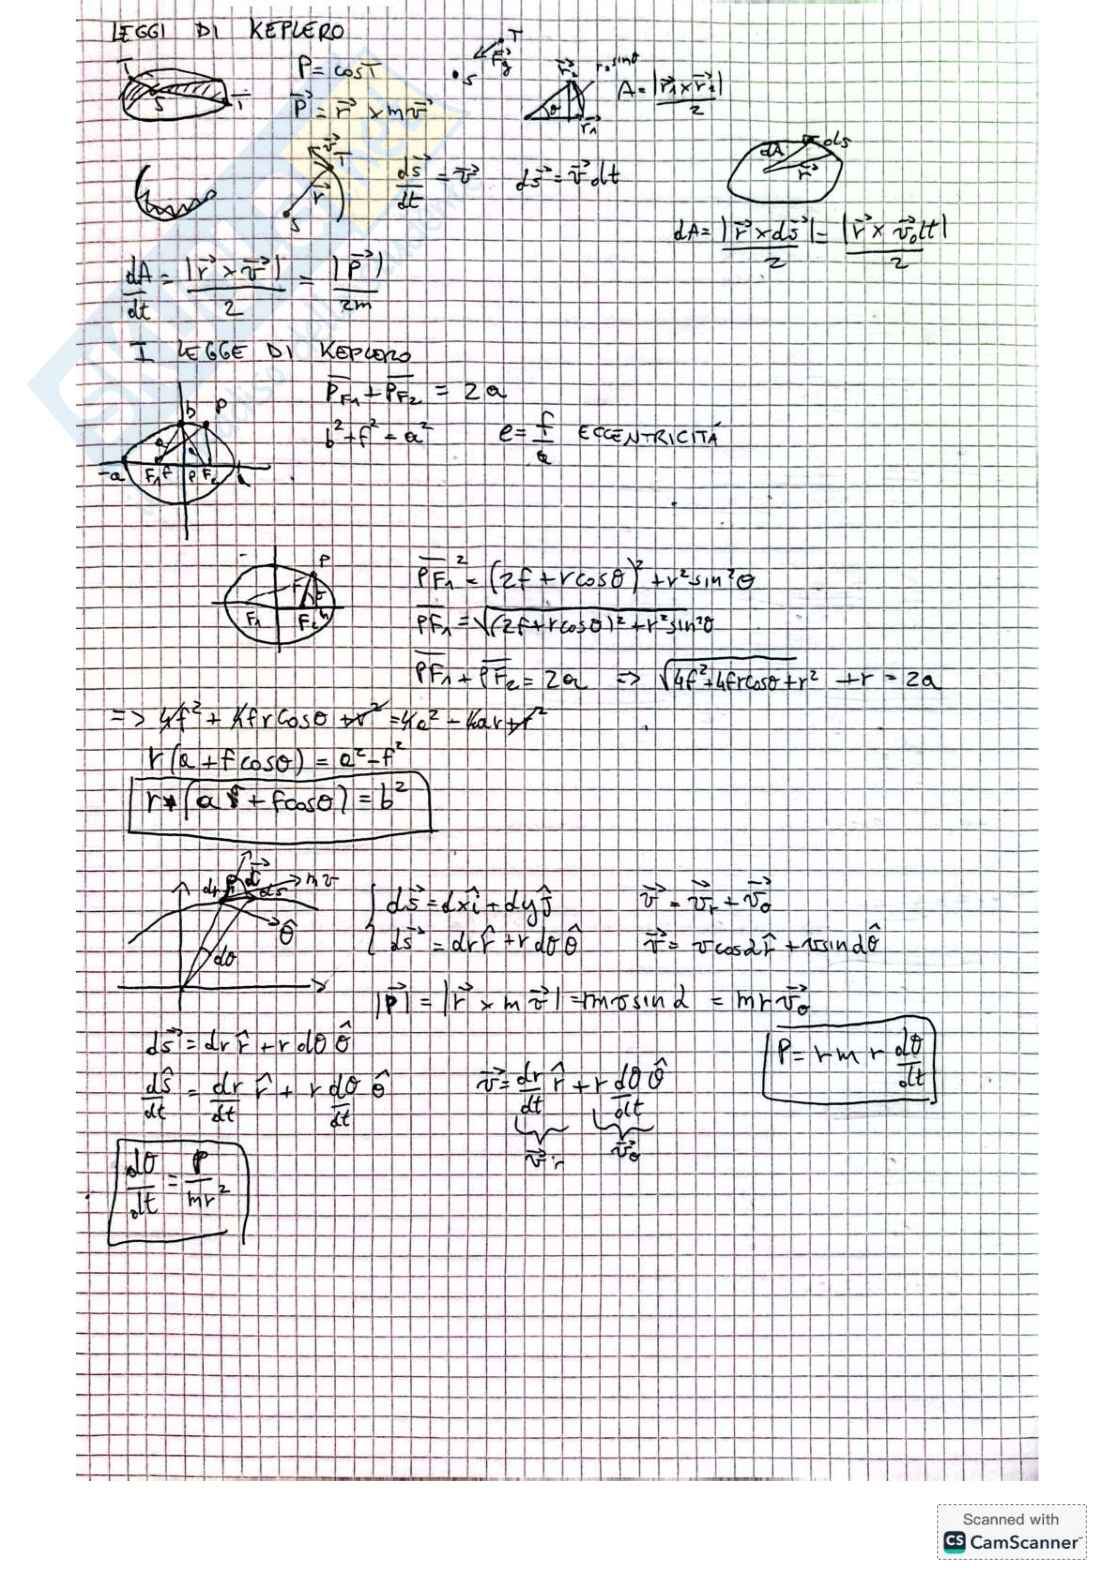 LEGGI DI KEPLERO
T
S
T
P = cosT
T
F⃗g
S
r⃗₂ r₂ sinθ
θ
r⃗₁
A = |r⃗₁ × r⃗₂| / 2
P⃗ = r⃗ × mv⃗
v⃗
T
r⃗
S
ds⃗/dt = v⃗
ds⃗ = v⃗ dt
dA
ds
r⃗
dA = |r⃗ × ds⃗| / 2 = |r⃗ × v⃗₀dt| / 2
dA/dt = |r⃗ × v⃗| / 2 = |P⃗| / 2m
I LEGGE DI KEPLERO
PF₁ + PF₂ = 2a
b P
b² + f² = a²
e = f/a ECCENTRICITÁ
-a F₁ f F₂
P
F₁ F₂
PF₁² = (2f + rcosθ)² + r²sin²θ
PF₁ = √(2f + rcosθ)² + r²sin²θ
PF₁ + PF₂ = 2a => √4f² + 4frcosθ + r² + r = 2a
=> 4f² + 4frcosθ + r² = 4a² - 4ar + r²
r(a + fcosθ) = a² - f²
r (a + fcosθ) = b²
dr
ds
mv
θ̂
dθ
ds⃗ = dxî + dyĵ
v⃗ = v⃗r + v⃗θ
ds⃗ = dr r̂ + r dθ θ̂
v⃗ = vcosα r̂ + vsinα θ̂
|P⃗| = |r⃗ × mv⃗| = mvsinα = mrv⃗θ
ds⃗ = dr r̂ + r dθ θ̂
P = rmr dθ/dt
ds⃗/dt = dr/dt r̂ + r dθ/dt θ̂
v⃗ = dr/dt r̂ + r dθ/dt θ̂
v⃗r v⃗θ
dθ/dt = P/mr²
Scanned with
CS CamScanner